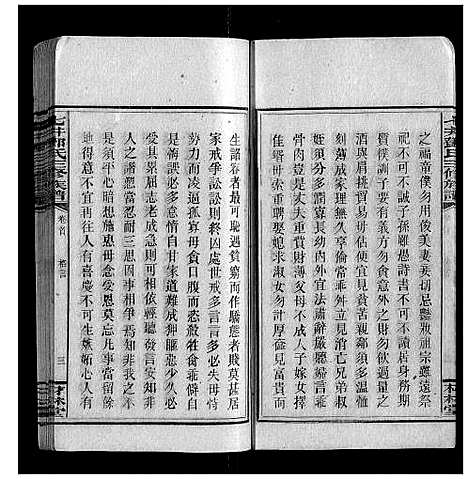 之福童僕勿用俊美妻妾切忌豔妝祖宗雖遠祭
祀不可不誠子孫雖愚詩書不可不讀居身務期
質樸訓子要有義方勿貪意外之財勿飲過量之
酒與肩挑貿易毋佔便宜見貧苦親鄰須多溫恤
刻薄成家理無久享倫常乖舛立見消亡兄弟叔
姪須多分潤寡長幼內外宜法肅辭嚴聽婦言乖
骨肉豈是丈夫重貲財薄父母不成人子嫁女擇
佳壻毋索重聘娶媳求淑女勿計厚奩見富貴而
生諂容者最可恥遇貧窮而作驕態者賤莫甚居
家戒爭訟訟則終凶處世戒多言言多必失毋恃
勢力而凌逼孤寡毋貪口腹而恣殺牲禽乖僻自
是悔誤必多頹惰自甘家道難成狎暱惡少久必
受其累屈志老成急則可相依輕聽發言安知非
人之譖愬當忍耐三思因事相爭焉知非我之不
是須平心暗想施惠勿念受恩莫忘凡事當留餘
地得意不宜再往人有喜慶不可生嫉妬心人有
氏三修族譜
卷首 格言 三
林堂